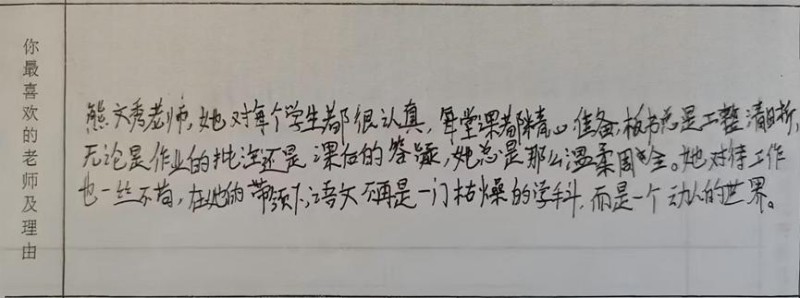 你最喜欢的老师及理由
熊文秀老师,她对每个学生都很认真,每堂课都精心准备,板书总是工整清晰,
无论是作业的批注还是课后的答疑,她总是那么温柔周全。她对待工作
也一丝不苟,在她的带领下,语文不再是一门枯燥的学科,而是一个动人的世界。